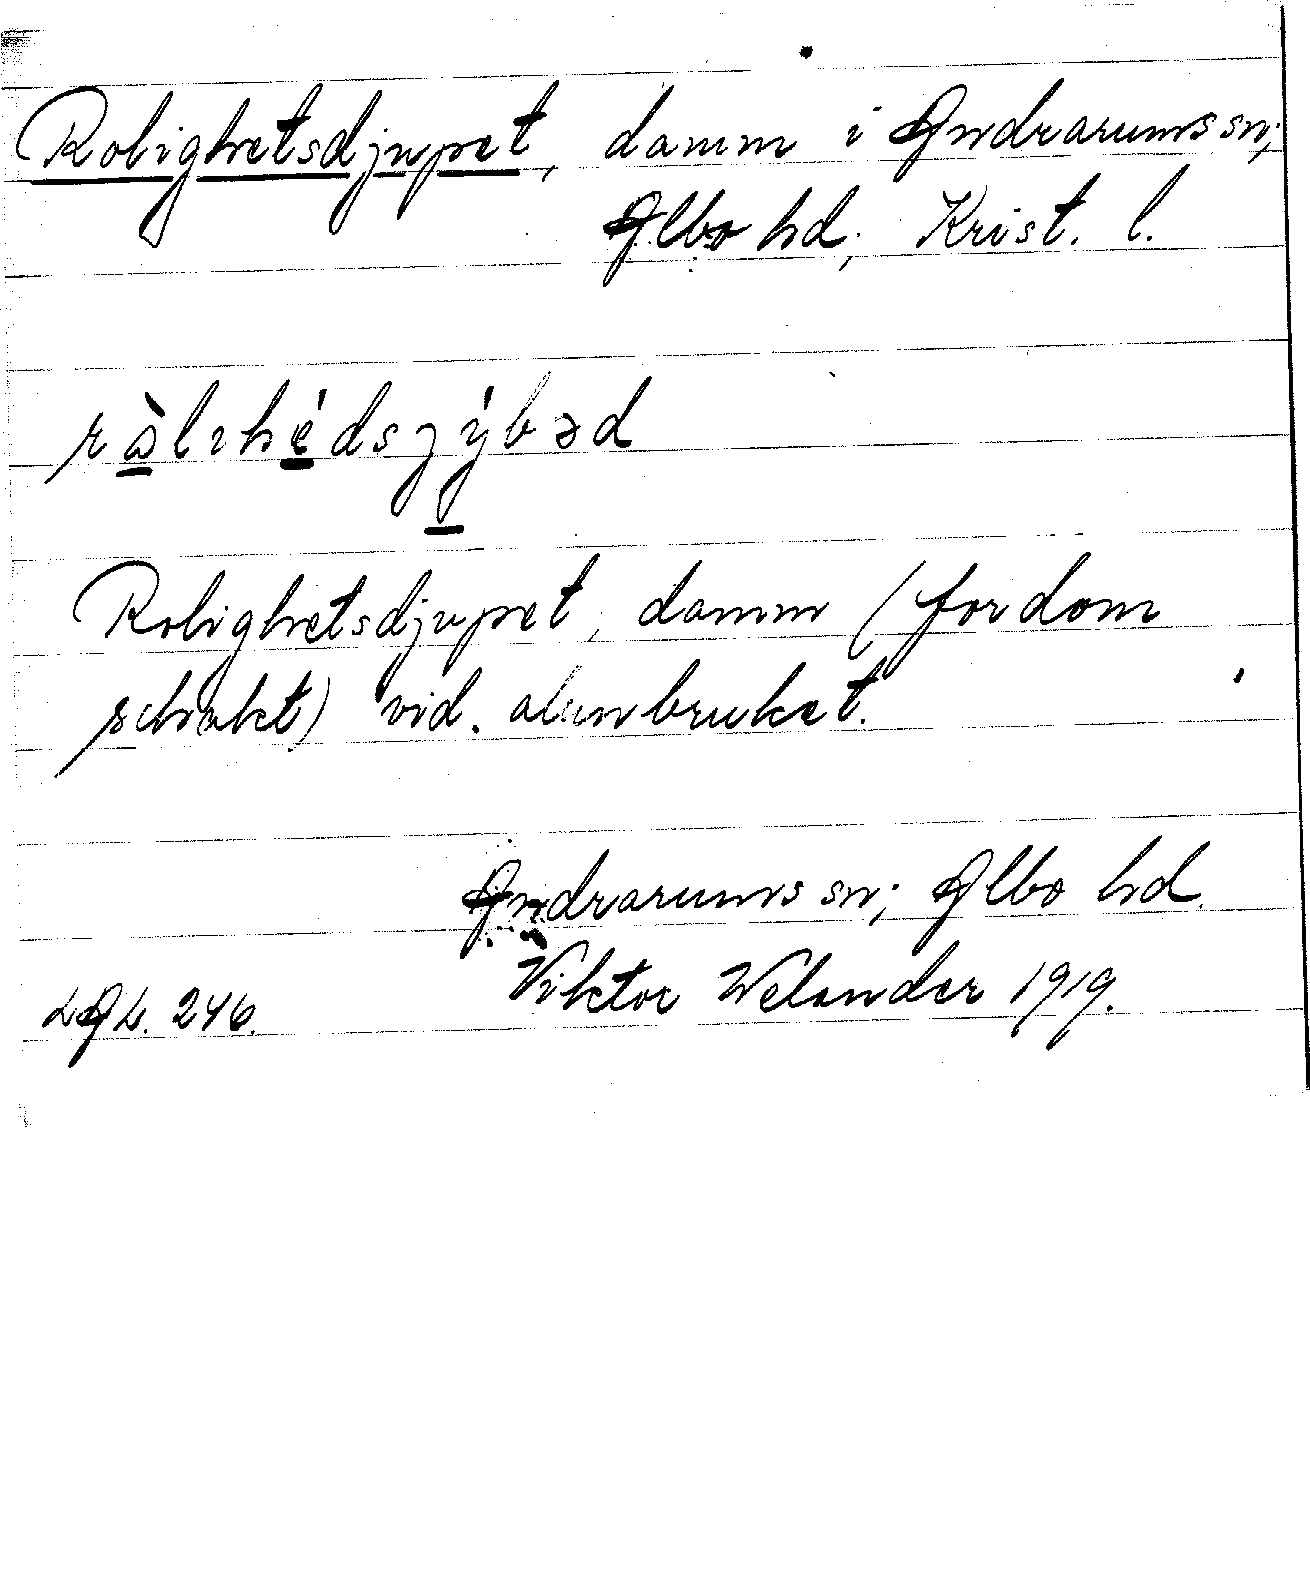 Rolighetsdjupet, damm i Andrarums sn;
Albo hd; Krist. l.
rålihédsjýbəd
Rolighetsdjupet, damm (fordom
schakt) vid. alunbruket.
Andrarums sn; Albo hd.
LAL. 246. Viktor Welander 1919.